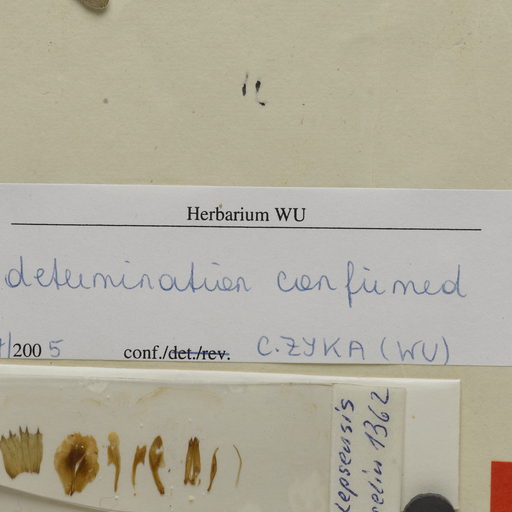 Herbarium WU
determination confirmed
/2005 conf./det./rev. C.ZYKA (WU)
1362